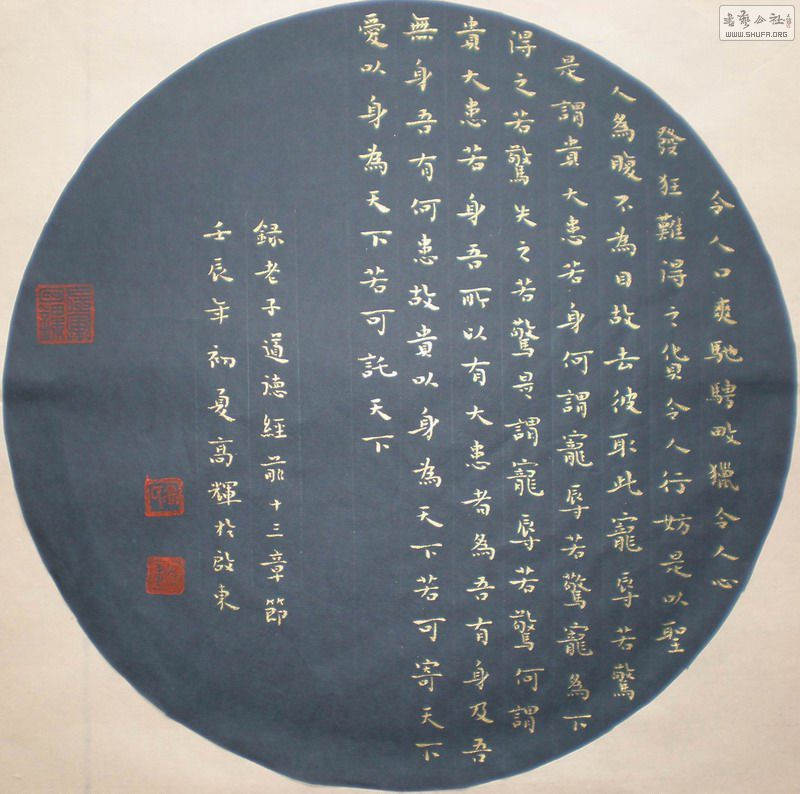 令人口爽馳騁畋獵令人心
發狂難得之貨令人行妨是以聖
人為腹不為目故去彼取此寵辱若驚
是謂貴大患若身何謂寵辱若驚寵為下
得之若驚失之若驚是謂寵辱若驚何謂
貴大患若身吾所以有大患者為吾有身及吾
無身吾有何患故貴以身為天下若可寄天下
愛以身為天下若可託天下
録老子道德經前十三章節
壬辰年初夏高輝於啟東
書藝公社
WWW.SHUFA.ORG